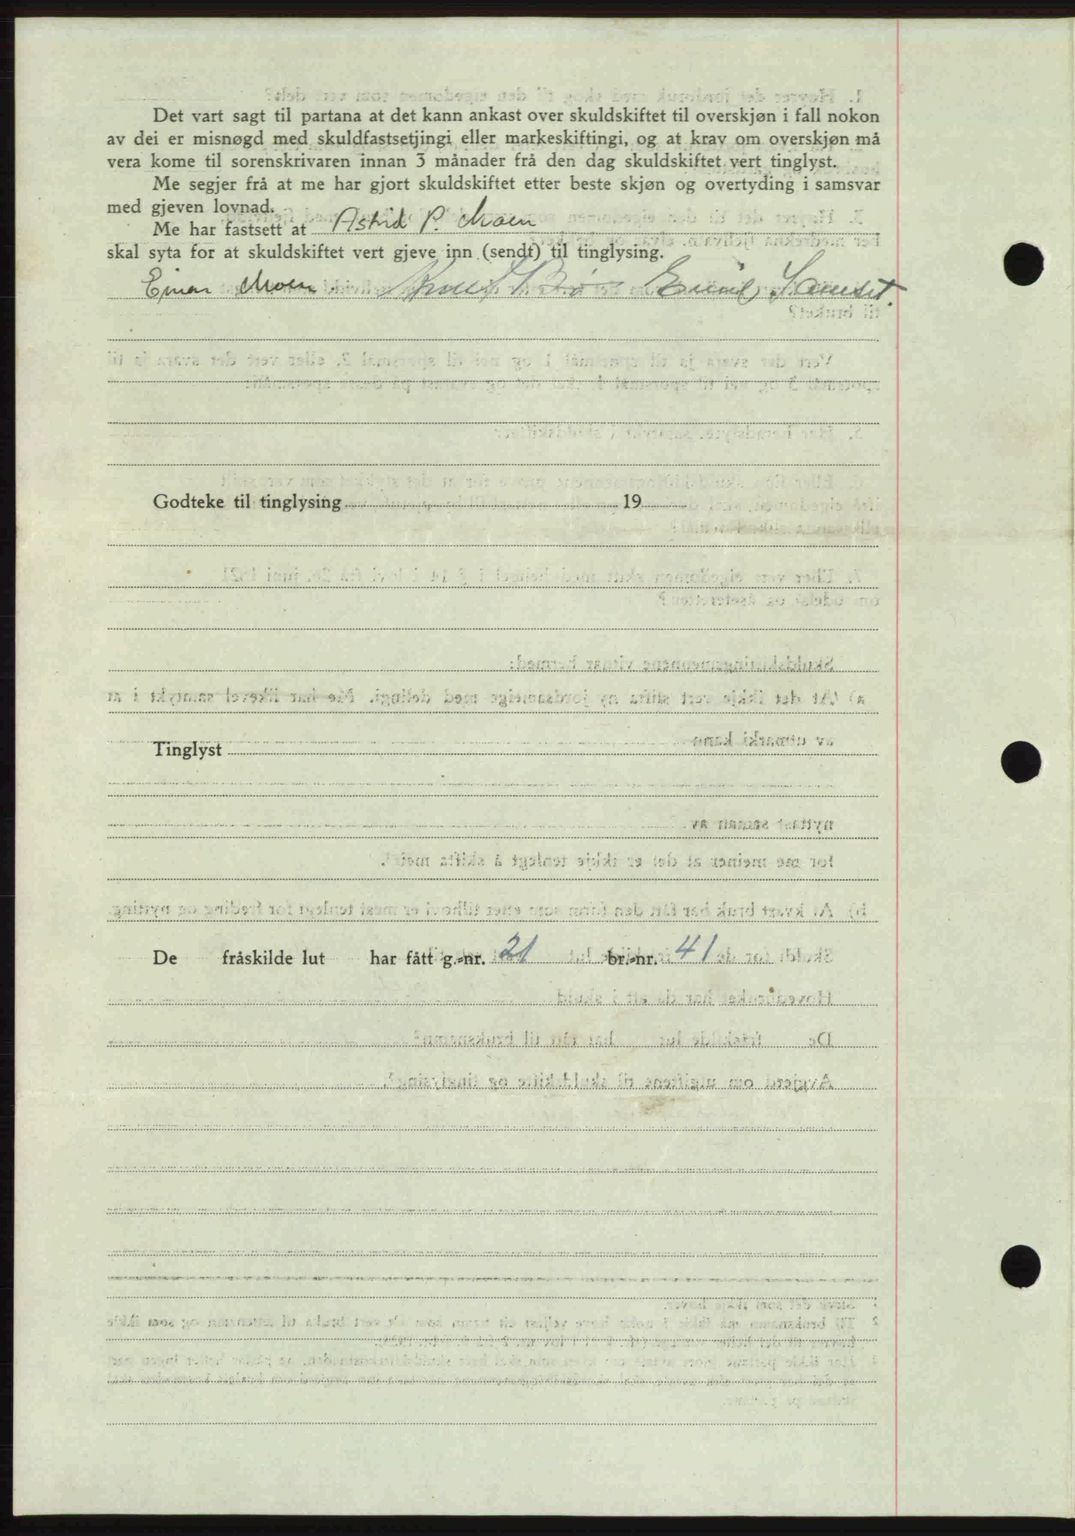 Det vart sagt til partana at det kann ankast over skuldskiftet til overskjøn i fall nokon
av dei er misnøgd med skuldfastsetjingi eller markeskiftingi, og at krav om overskjøn må
vera kome til sorenskrivaren innan 3 månader frå den dag skuldskiftet vert tinglyst.
Me segjer frå at me har gjort skuldskiftet etter beste skjøn og overtyding i samsvar
med gjeven lovnad.
Me har fastsett at Astrid P. Moen
skal syta for at skuldskiftet vert gjeve inn (sendt) til tinglysing.
Einar Moen Knut Bø
Godteke til tinglysing 19
Tinglyst
De fråskilde lut har fått g.-nr. 21 br.-nr. 41